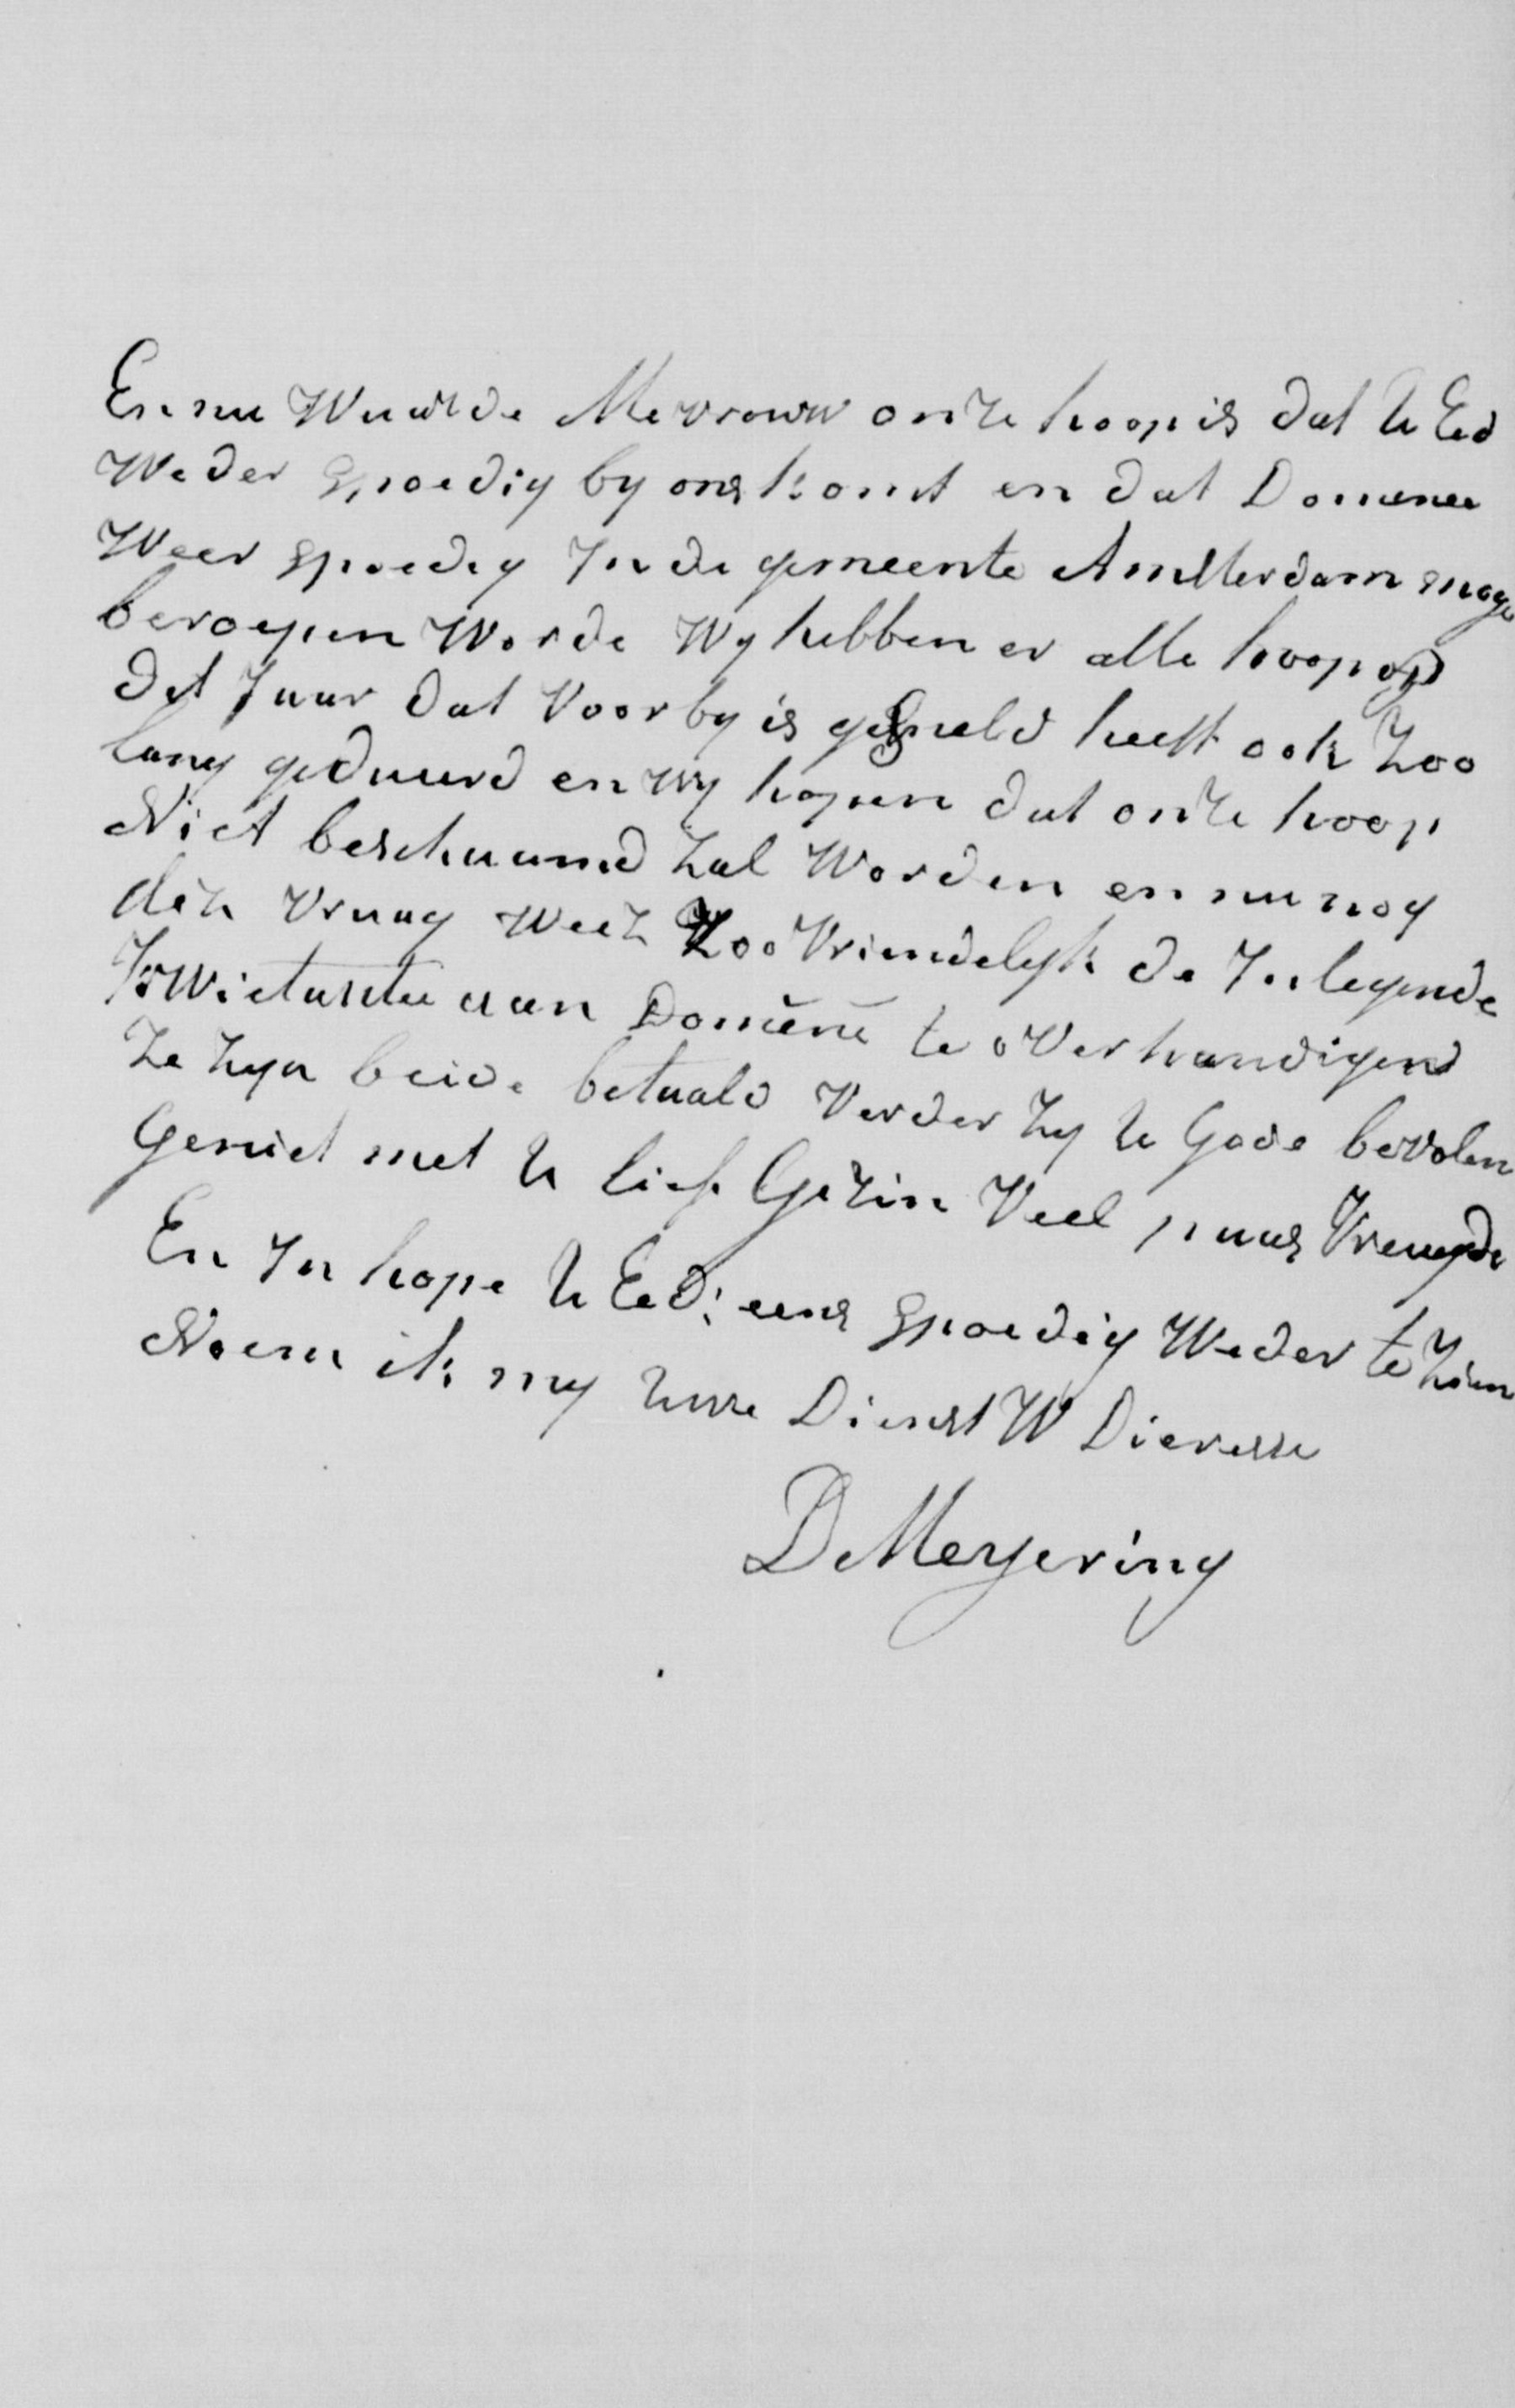 En nu Waarde Mevrouw onze hoop is dat U Ed
Weder spoedig by ons komt en dat Domenee
Weer spoedig In de gemeente Amsterdam moge
beroepen Worde Wy hebben er alle hoop op
dit Jaar dat Voorby is gesneld heeft ook Zoo
lang geduurd en wy hopen dat onze hoop
Niet beschaamd Zal Worden en nu nog
dez Vraag Weez Zoo Vriendelyk de Inlegende
Kwietantie aan Domené te overhandigend
Ze Zyn beide betaald Verder Zy U Gode bevolen
Geniet met U lief Gezin Veel paas Vreugde
En In hope U Ed: eens spoedig Weder te Zien
Noem ik my Uwe Dienst W Dieresse
D Meyering